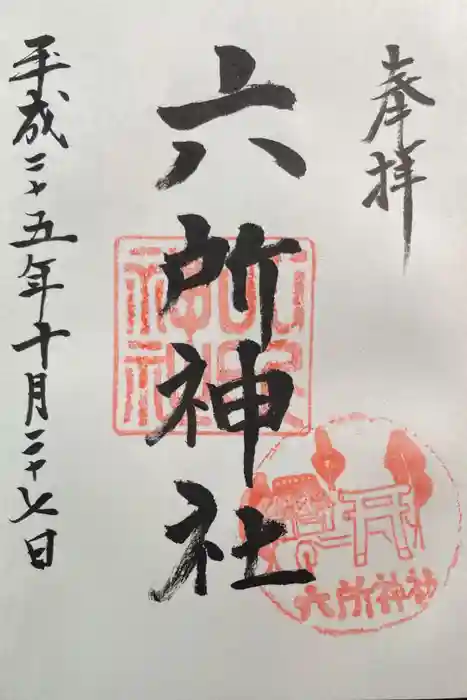 奉拝
六所神社
平成二十五年十月二十七日
六所神社
六所神社